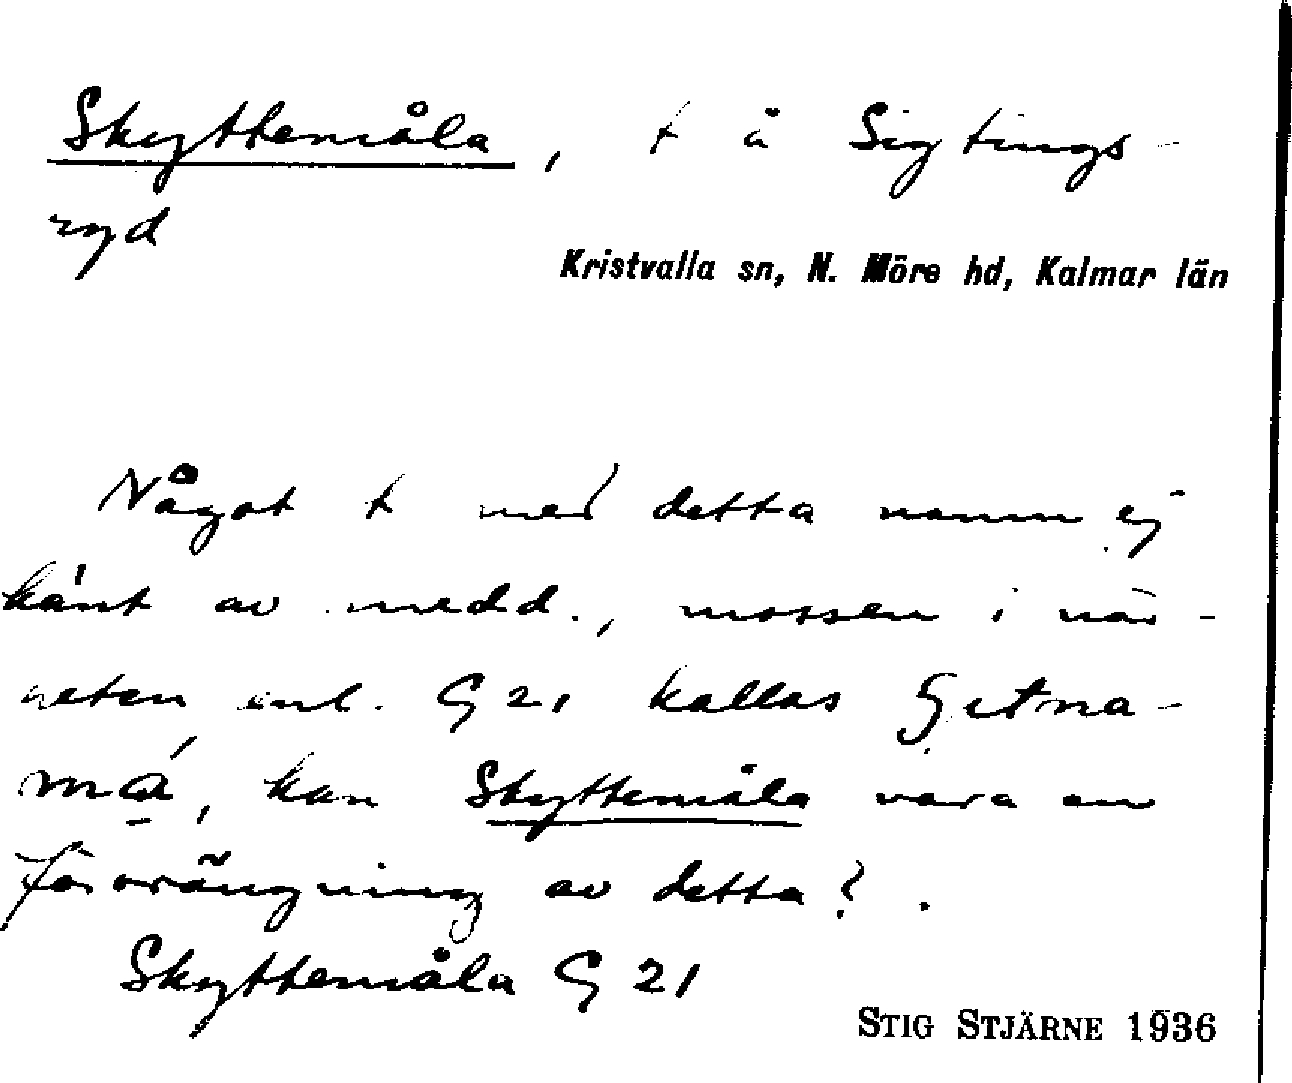 Skyttemåla, t å Sigtings-
ryd
Kristvalla sn, N. Möre hd, Kalmar län
Något t med detta namn ej
känt av medd., mossen i när-
heten enl. G 21 kallas Getna-
må, kan Skyttemåla vara en
förvrängning av detta?.
Skyttemåla G 21
STIG STJÄRNE 1936